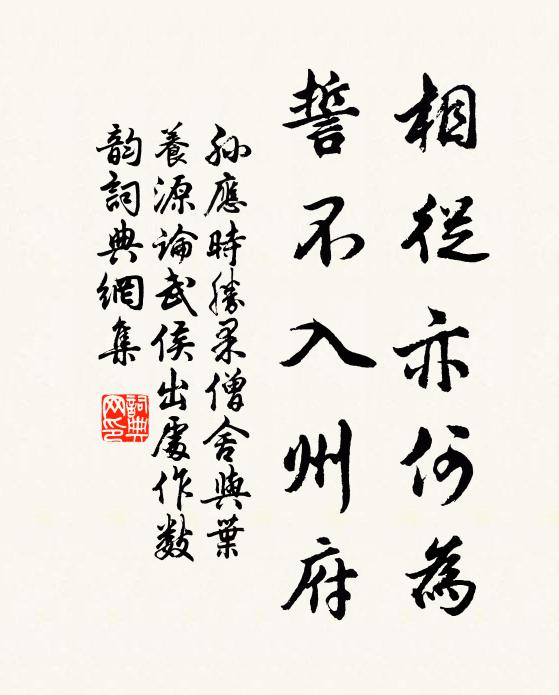 相從亦何為
誓不入州府
孫應時勝果僧舍與葉
養源論武侯出處作數
韻詞典網集
詞典网印